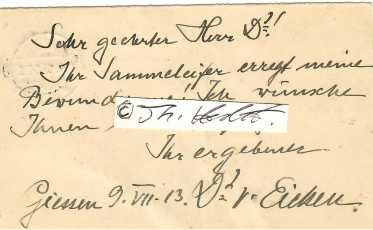 Sehr geehrter Herr Dr!
Ihr Sammeleifer erregt meine
Ich wünsche
Ihnen
©
Ihr ergebener
Giessen 9. VII. 13. Dr v. Eicken.